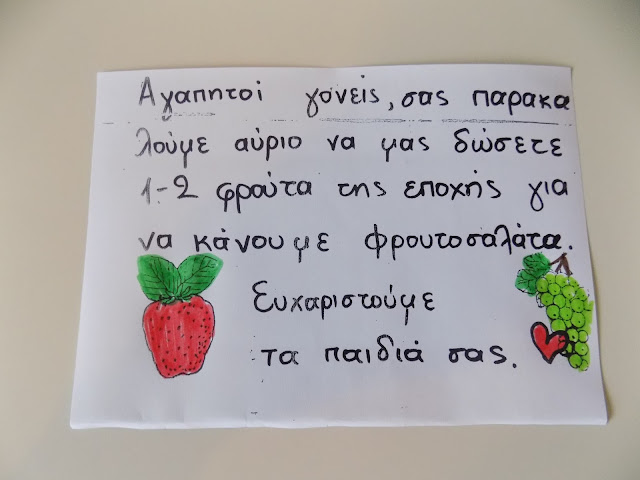 Αγαπητοί γονείς, σας παρακα
λούμε αύριο να μας δώσετε
1-2 φρούτα της εποχής για
να κάνουμε φρουτοσαλάτα.
Ευχαριστούμε
τα παιδιά σας.